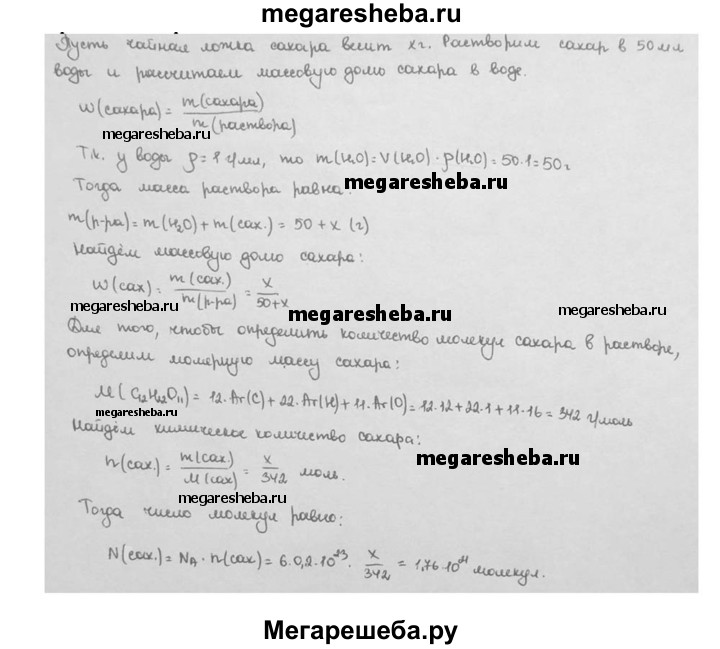 megaresheba.ru
Пусть чайная ложка сахара весит x г. Растворим сахар в 50 мл
воды и рассчитаем массовую долю сахара в воде.
w(сахара) = m(сахара) / m(раствора)
megaresheba.ru
Т.к. у воды ρ = 1 г/мл, то m(H₂O) = V(H₂O) · ρ(H₂O) = 50 · 1 = 50 г
megaresheba.ru
Тогда масса раствора равна:
m(р-ра) = m(H₂O) + m(сах.) = 50 + x (г)
Найдём массовую долю сахара:
w(сах) = m(сах.) / m(р-ра) = x / 50+x
megaresheba.ru
megaresheba.ru
megaresheba.ru
Для того, чтобы определить количество молекул сахара в растворе,
определим молярную массу сахара:
M(C₁₂H₂₂O₁₁) = 12·Ar(C) + 22·Ar(H) + 11·Ar(O) = 12·12 + 22·1 + 11·16 = 342 г/моль
megaresheba.ru
Найдём химическое количество сахара:
n(сах.) = m(сах.) / M(сах) = x / 342 моль.
megaresheba.ru
megaresheba.ru
Тогда число молекул равно:
N(сах.) = NA · n(сах) = 6.0,2·10²³ · x / 342 = 1,76·10²¹ молекул.
megaresheba.ru
megaresheba.ru
Мегарешеба.ру